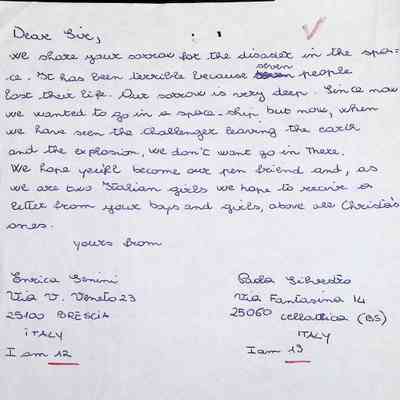 Dear Sir,
we share your sorrow for the disaster in the spa=
ce. It has been terrible because seven people
lost their life. Our sorrow is very deep. Since now
we wanted to go in a space-ship, but now, when
we have seen the Challenger leaving the earth
and the explosion, we don't want go in There.
We hope you'll become our pen friend and, as
we are two Italian girls we hope to recive a
letter from your boys and girls, above all Christa's
ones.
yours from
Enrica Genini
Via V. Veneto 23
25100 BRESCIA
ITALY
I am 12
Paola Silvestro
Via Fantasina 14
25060 Cellatica (BS)
ITALY
I am 13